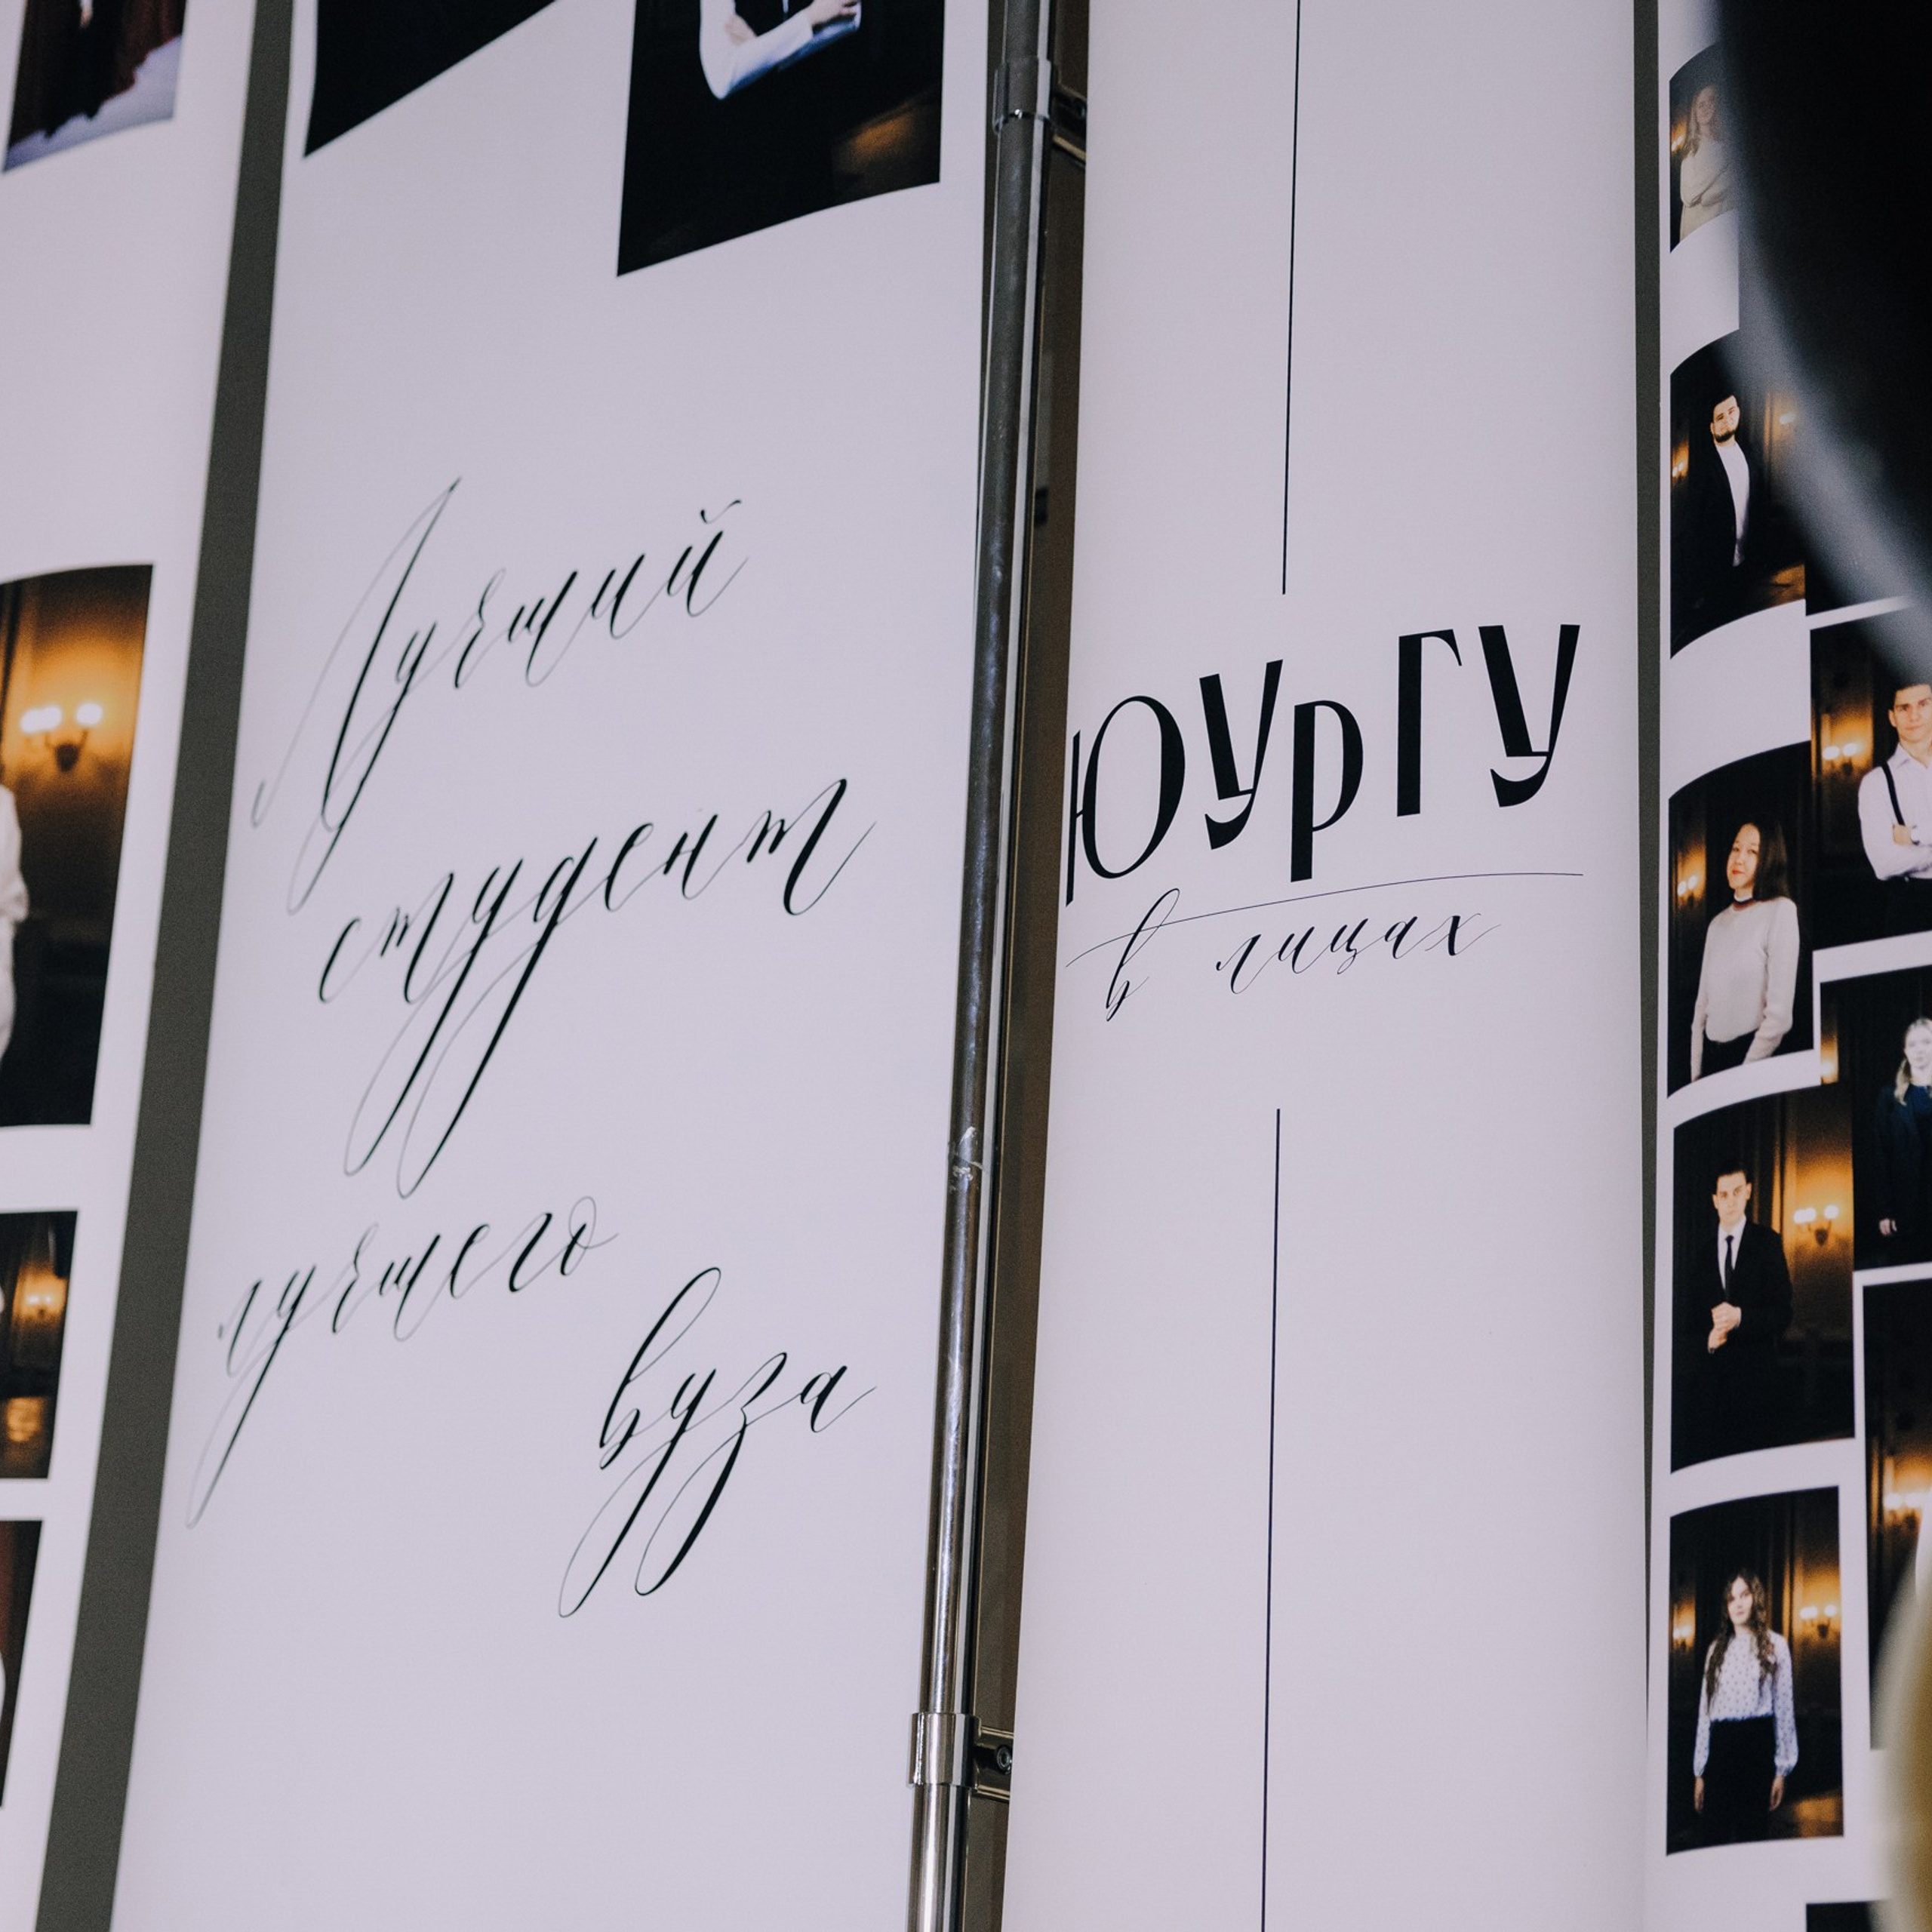 Лучший
студент
лучшего
вуза
ЮУрГУ
в лицах